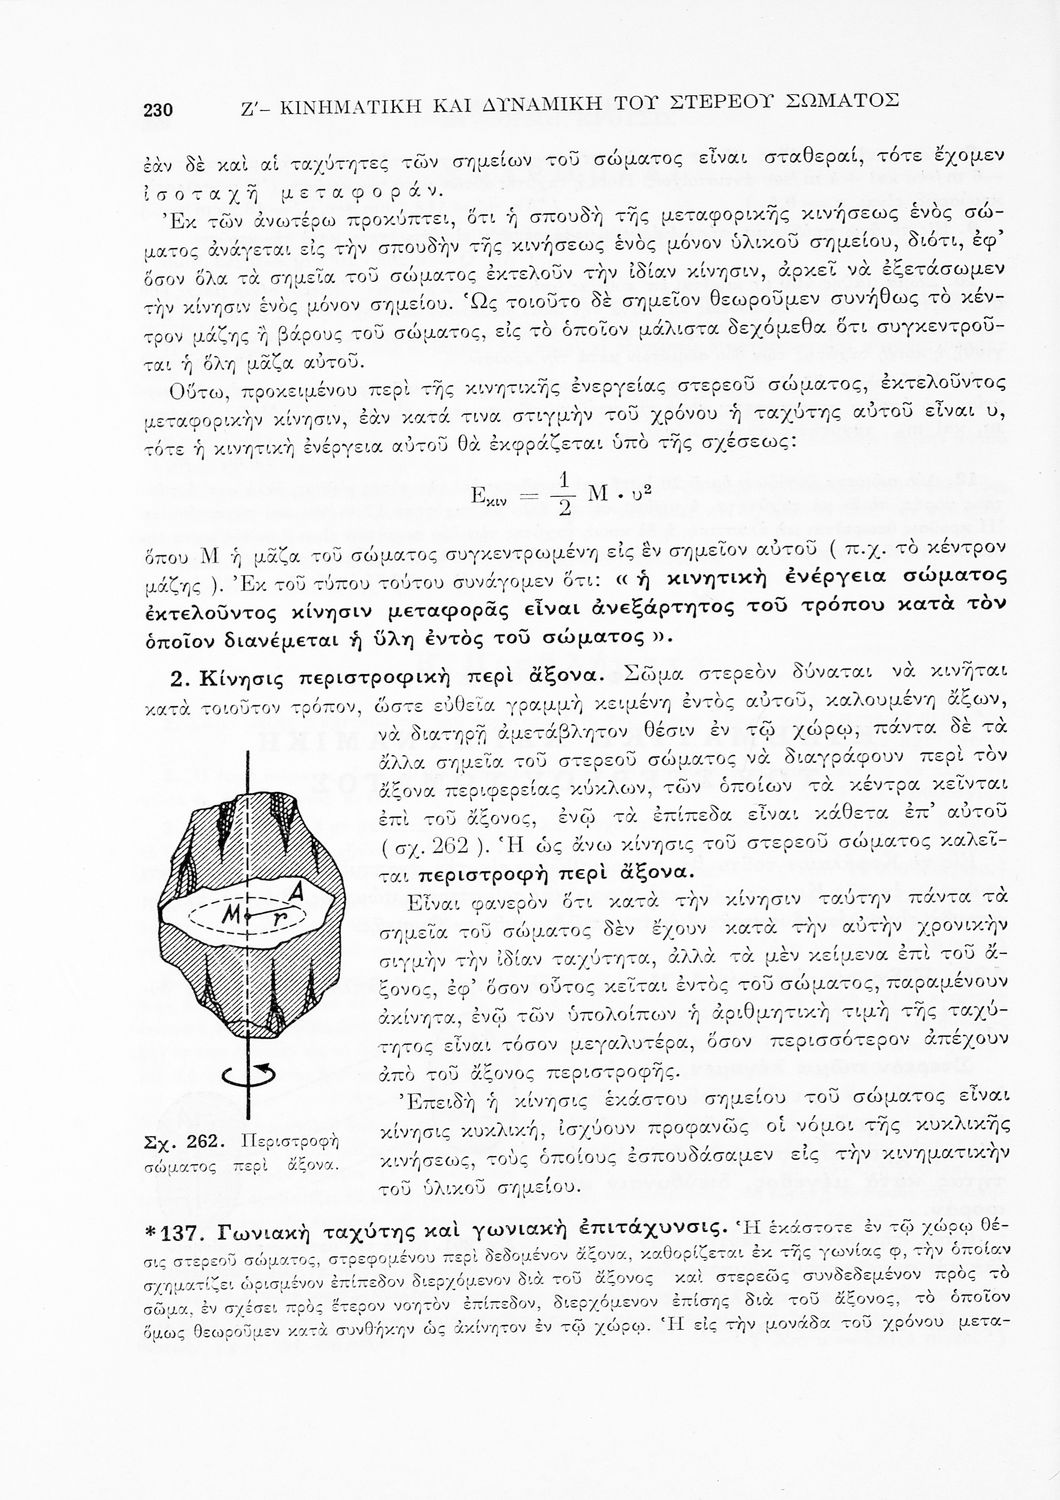 230 Ζ′– ΚΙΝΗΜΑΤΙΚΗ ΚΑΙ ΔΥΝΑΜΙΚΗ ΤΟΥ ΣΤΕΡΕΟΥ ΣΩΜΑΤΟΣ
ἐὰν δὲ καὶ αἱ ταχύτητες τῶν σημείων τοῦ σώματος εἶναι σταθεραί, τότε ἔχομεν
ἰσοταχῆ μεταφοράν.
Ἐκ τῶν ἀνωτέρω προκύπτει, ὅτι ἡ σπουδὴ τῆς μεταφορικῆς κινήσεως ἑνὸς σώ-
ματος ἀνάγεται εἰς τὴν σπουδὴν τῆς κινήσεως ἑνὸς μόνον ὑλικοῦ σημείου, διότι, ἐφ’
ὅσον ὅλα τὰ σημεῖα τοῦ σώματος ἐκτελοῦν τὴν ἰδίαν κίνησιν, ἀρκεῖ νὰ ἐξετάσωμεν
τὴν κίνησιν ἑνὸς μόνον σημείου. Ὡς τοιοῦτο δὲ σημεῖον θεωροῦμεν συνήθως τὸ κέν-
τρον μάζης ἢ βάρους τοῦ σώματος, εἰς τὸ ὁποῖον μάλιστα δεχόμεθα ὅτι συγκεντροῦ-
ται ἡ ὅλη μᾶζα αὐτοῦ.
Οὕτω, προκειμένου περὶ τῆς κινητικῆς ἐνεργείας στερεοῦ σώματος, ἐκτελοῦντος
μεταφορικὴν κίνησιν, ἐὰν κατά τινα στιγμὴν τοῦ χρόνου ἡ ταχύτης αὐτοῦ εἶναι υ,
τότε ἡ κινητικὴ ἐνέργεια αὐτοῦ θὰ ἐκφράζεται ὑπὸ τῆς σχέσεως:
Εκιν = 1/2 Μ . υ²
ὅπου Μ ἡ μᾶζα τοῦ σώματος συγκεντρωμένη εἰς ἓν σημεῖον αὐτοῦ ( π.χ. τὸ κέντρον
μάζης ). Ἐκ τοῦ τύπου τούτου συνάγομεν ὅτι: « ἡ κινητικὴ ἐνέργεια σώματος
ἐκτελοῦντος κίνησιν μεταφορᾶς εἶναι ἀνεξάρτητος τοῦ τρόπου κατὰ τὸν
ὁποῖον διανέμεται ἡ ὕλη ἐντὸς τοῦ σώματος ».
2. Κίνησις περιστροφικὴ περὶ ἄξονα. Σῶμα στερεὸν δύναται νὰ κινῆται
κατὰ τοιοῦτον τρόπον, ὥστε εὐθεῖα γραμμὴ κειμένη ἐντὸς αὐτοῦ, καλουμένη ἄξων,
νὰ διατηρῇ ἀμετάβλητον θέσιν ἐν τῷ χώρῳ, πάντα δὲ τὰ
ἄλλα σημεῖα τοῦ στερεοῦ σώματος νὰ διαγράφουν περὶ τὸν
ἄξονα περιφερείας κύκλων, τῶν ὁποίων τὰ κέντρα κεῖνται
ἐπὶ τοῦ ἄξονος, ἐνῷ τὰ ἐπίπεδα εἶναι κάθετα ἐπ’ αὐτοῦ
( σχ. 262 ). Ἡ ὡς ἄνω κίνησις τοῦ στερεοῦ σώματος καλεῖ-
ται περιστροφὴ περὶ ἄξονα.
Εἶναι φανερὸν ὅτι κατὰ τὴν κίνησιν ταύτην πάντα τὰ
σημεῖα τοῦ σώματος δὲν ἔχουν κατὰ τὴν αὐτὴν χρονικὴν
σιγμὴν τὴν ἰδίαν ταχύτητα, ἀλλὰ τὰ μὲν κείμενα ἐπὶ τοῦ ἄ-
ξονος, ἐφ’ ὅσον οὗτος κεῖται ἐντὸς τοῦ σώματος, παραμένουν
ἀκίνητα, ἐνῷ τῶν ὑπολοίπων ἡ ἀριθμητικὴ τιμὴ τῆς ταχύ-
τητος εἶναι τόσον μεγαλυτέρα, ὅσον περισσότερον ἀπέχουν
ἀπὸ τοῦ ἄξονος περιστροφῆς.
Ἐπειδὴ ἡ κίνησις ἑκάστου σημείου τοῦ σώματος εἶναι
κίνησις κυκλική, ἰσχύουν προφανῶς οἱ νόμοι τῆς κυκλικῆς
κινήσεως, τοὺς ὁποίους ἐσπουδάσαμεν εἰς τὴν κινηματικὴν
τοῦ ὑλικοῦ σημείου.
A
M r
Σχ. 262. Περιστροφὴ
σώματος περὶ ἄξονα.
*137. Γωνιακὴ ταχύτης καὶ γωνιακὴ ἐπιτάχυνσις. Ἡ ἑκάστοτε ἐν τῷ χώρῳ θέ-
σις στερεοῦ σώματος, στρεφομένου περὶ δεδομένον ἄξονα, καθορίζεται ἐκ τῆς γωνίας φ, τὴν ὁποίαν
σχηματίζει ὡρισμένον ἐπίπεδον διερχόμενον διὰ τοῦ ἄξονος καὶ στερεῶς συνδεδεμένον πρὸς τὸ
σῶμα, ἐν σχέσει πρὸς ἕτερον νοητὸν ἐπίπεδον, διερχόμενον ἐπίσης διὰ τοῦ ἄξονος, τὸ ὁποῖον
ὅμως θεωροῦμεν κατὰ συνθήκην ὡς ἀκίνητον ἐν τῷ χώρῳ. Ἡ εἰς τὴν μονάδα τοῦ χρόνου μετα-